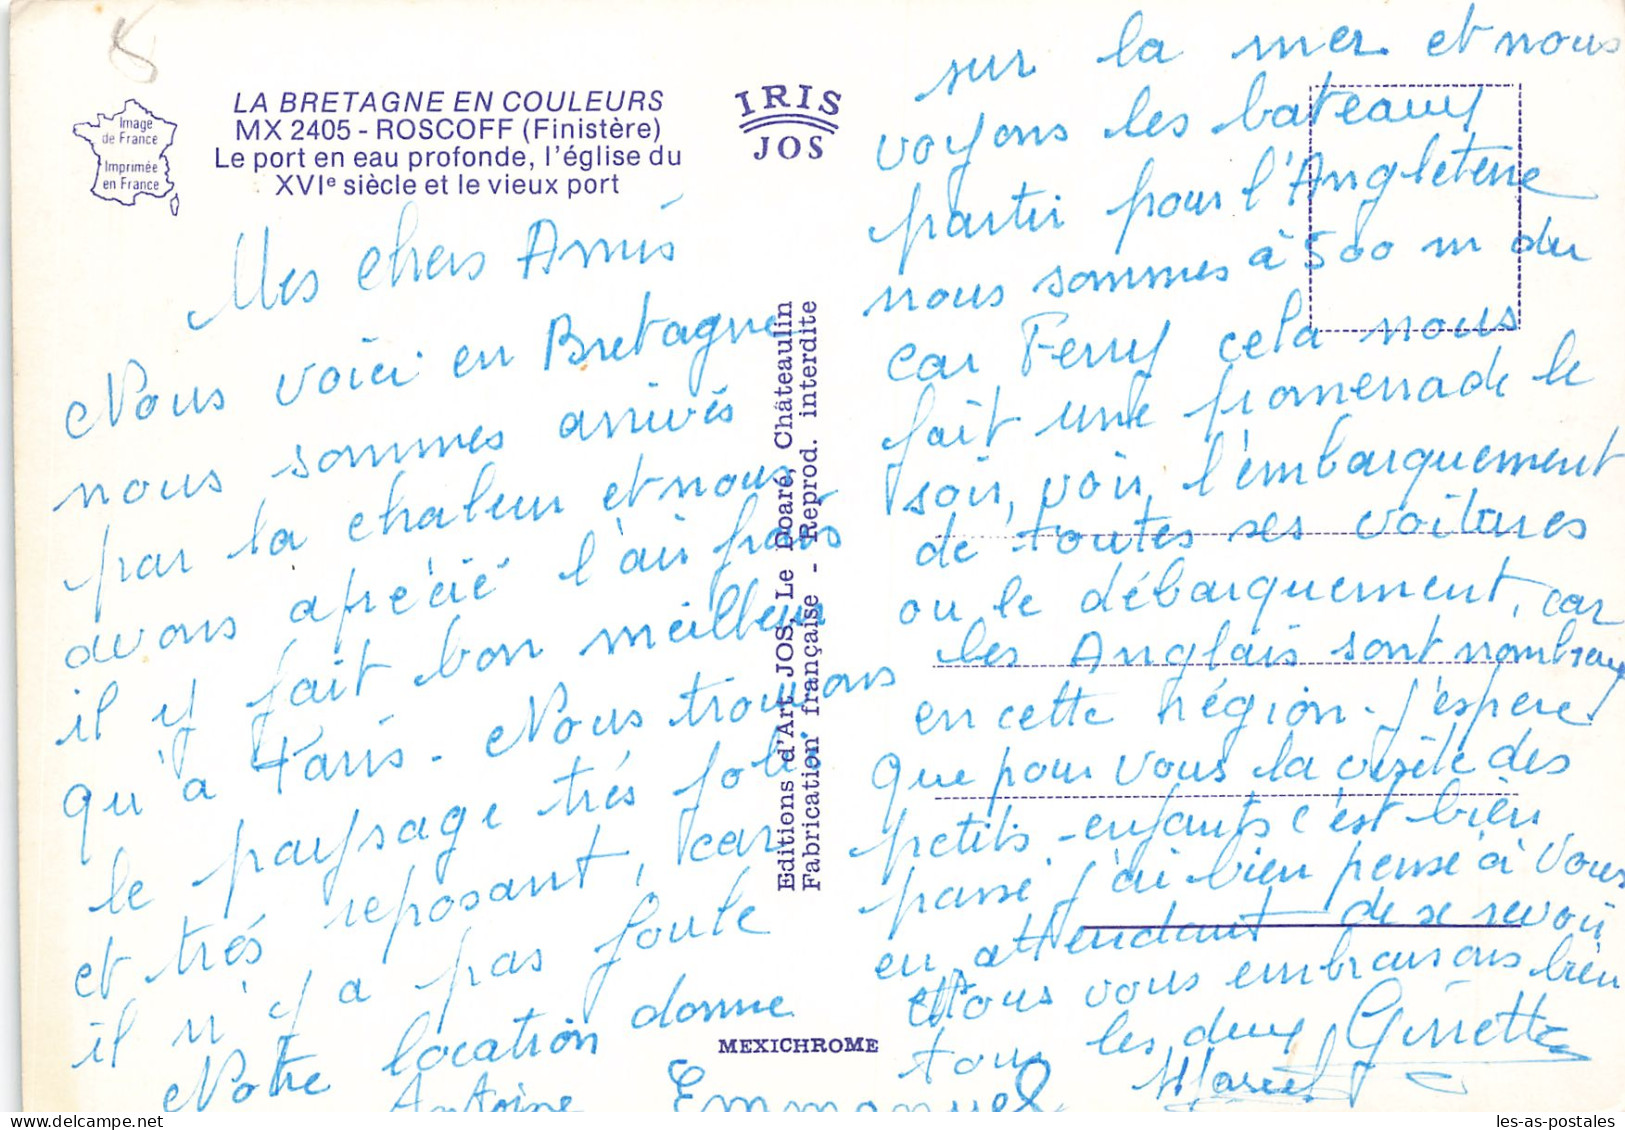 Image
de France
Imprimée
en France
LA BRETAGNE EN COULEURS
MX 2405 - ROSCOFF (Finistère)
Le port en eau profonde, l'église du
XVIe siècle et le vieux port
IRIS
JOS
Editions d'Art JOS, Le Doaré, Châteaulin
Fabrication française - Reprod. interdite
MEXICHROME
Mes chers Amis
Nous voici en Bretagne
nous sommes arrivés
par la chaleur et nous
avons aprécié l'air frais
il y fait bon meilleur
qu'a Paris - Nous trouvons
le paysage très joli
et très reposant, car
il n'y a pas foule
Notre location donne
sur la mer et nous
voyons les bateaux
partir pour l'Angleterre
nous sommes à 500 m du
car Ferry cela nous
fait une promenade le
soir, voir l'embarquement
de toutes ses voitures
ou le débarquement, car
les Anglais sont nombreux
en cette région - J'espere
que pour vous la visite des
petits-enfants c'est bien
passé j'ai bien pensé à vous
en attendant de se revoir
Nous vous embrassons bien
tous les deux Ginette
Antoine Emmanuel Marcel
les-as-postales